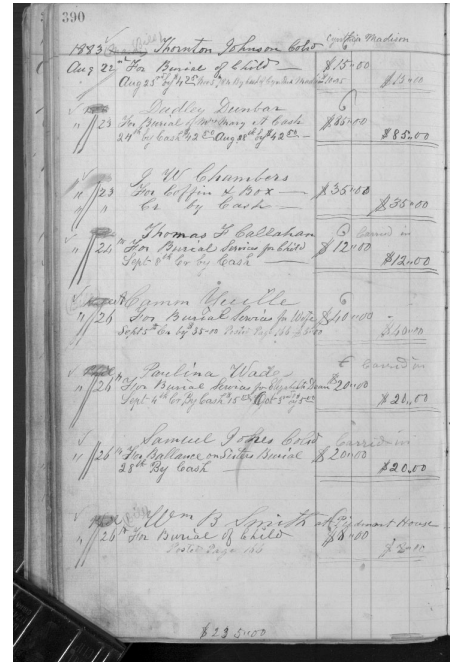 390
Cynthia Madison
1883 Thornton Johnson Cold
Aug 22nd For Burial of Child $15.00
Aug 25th by $4.25 $15.00
Dudley Dunbar
" 23 For Burial of Mrs Mary A Cash $85.00
24th by Cash $42 50 Aug 28th by $42 50 $85.00
J W Chambers
" 23 For Coffin & Box $35.00
" " Cr by Cash $35.00
Thomas F Callahan Carred in
" 24th For Burial Services for Child $12.00
Sept 8th Cr by Cash $12.00
Camm Yuille
" 26 For Burial Services for Wife $40.00
Sept 5th Cr by $35.00 Posted Page 166 $5.00 $40.00
Paulina Wade Carred in
" 26th For Burial Services for Elizabeth Dean $20.00
Sept 4th Cr By Cash $15.00 Oct 3rd by 5.00 $20.00
Samuel Jones Cold Carred in
" 26th For Ballance on Sisters Burial $20.00
28th By Cash $20.00
Wm B Smith at Piedmont House
" 26th For Burial of Child $8.00
Posted Page 166 $8.00
$235.00